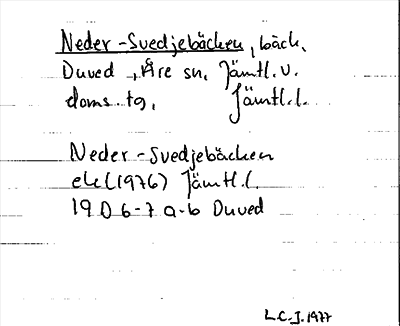 Neder-Svedjebäcken, bäck,
Duved, Åre sn, Jämtl.v.
doms.tg, Jämtl.l.
Neder-Svedjebäcken
ek(1976) Jämtl.l.
19 D 6-7 a-b Duved
L.C.J. 1977